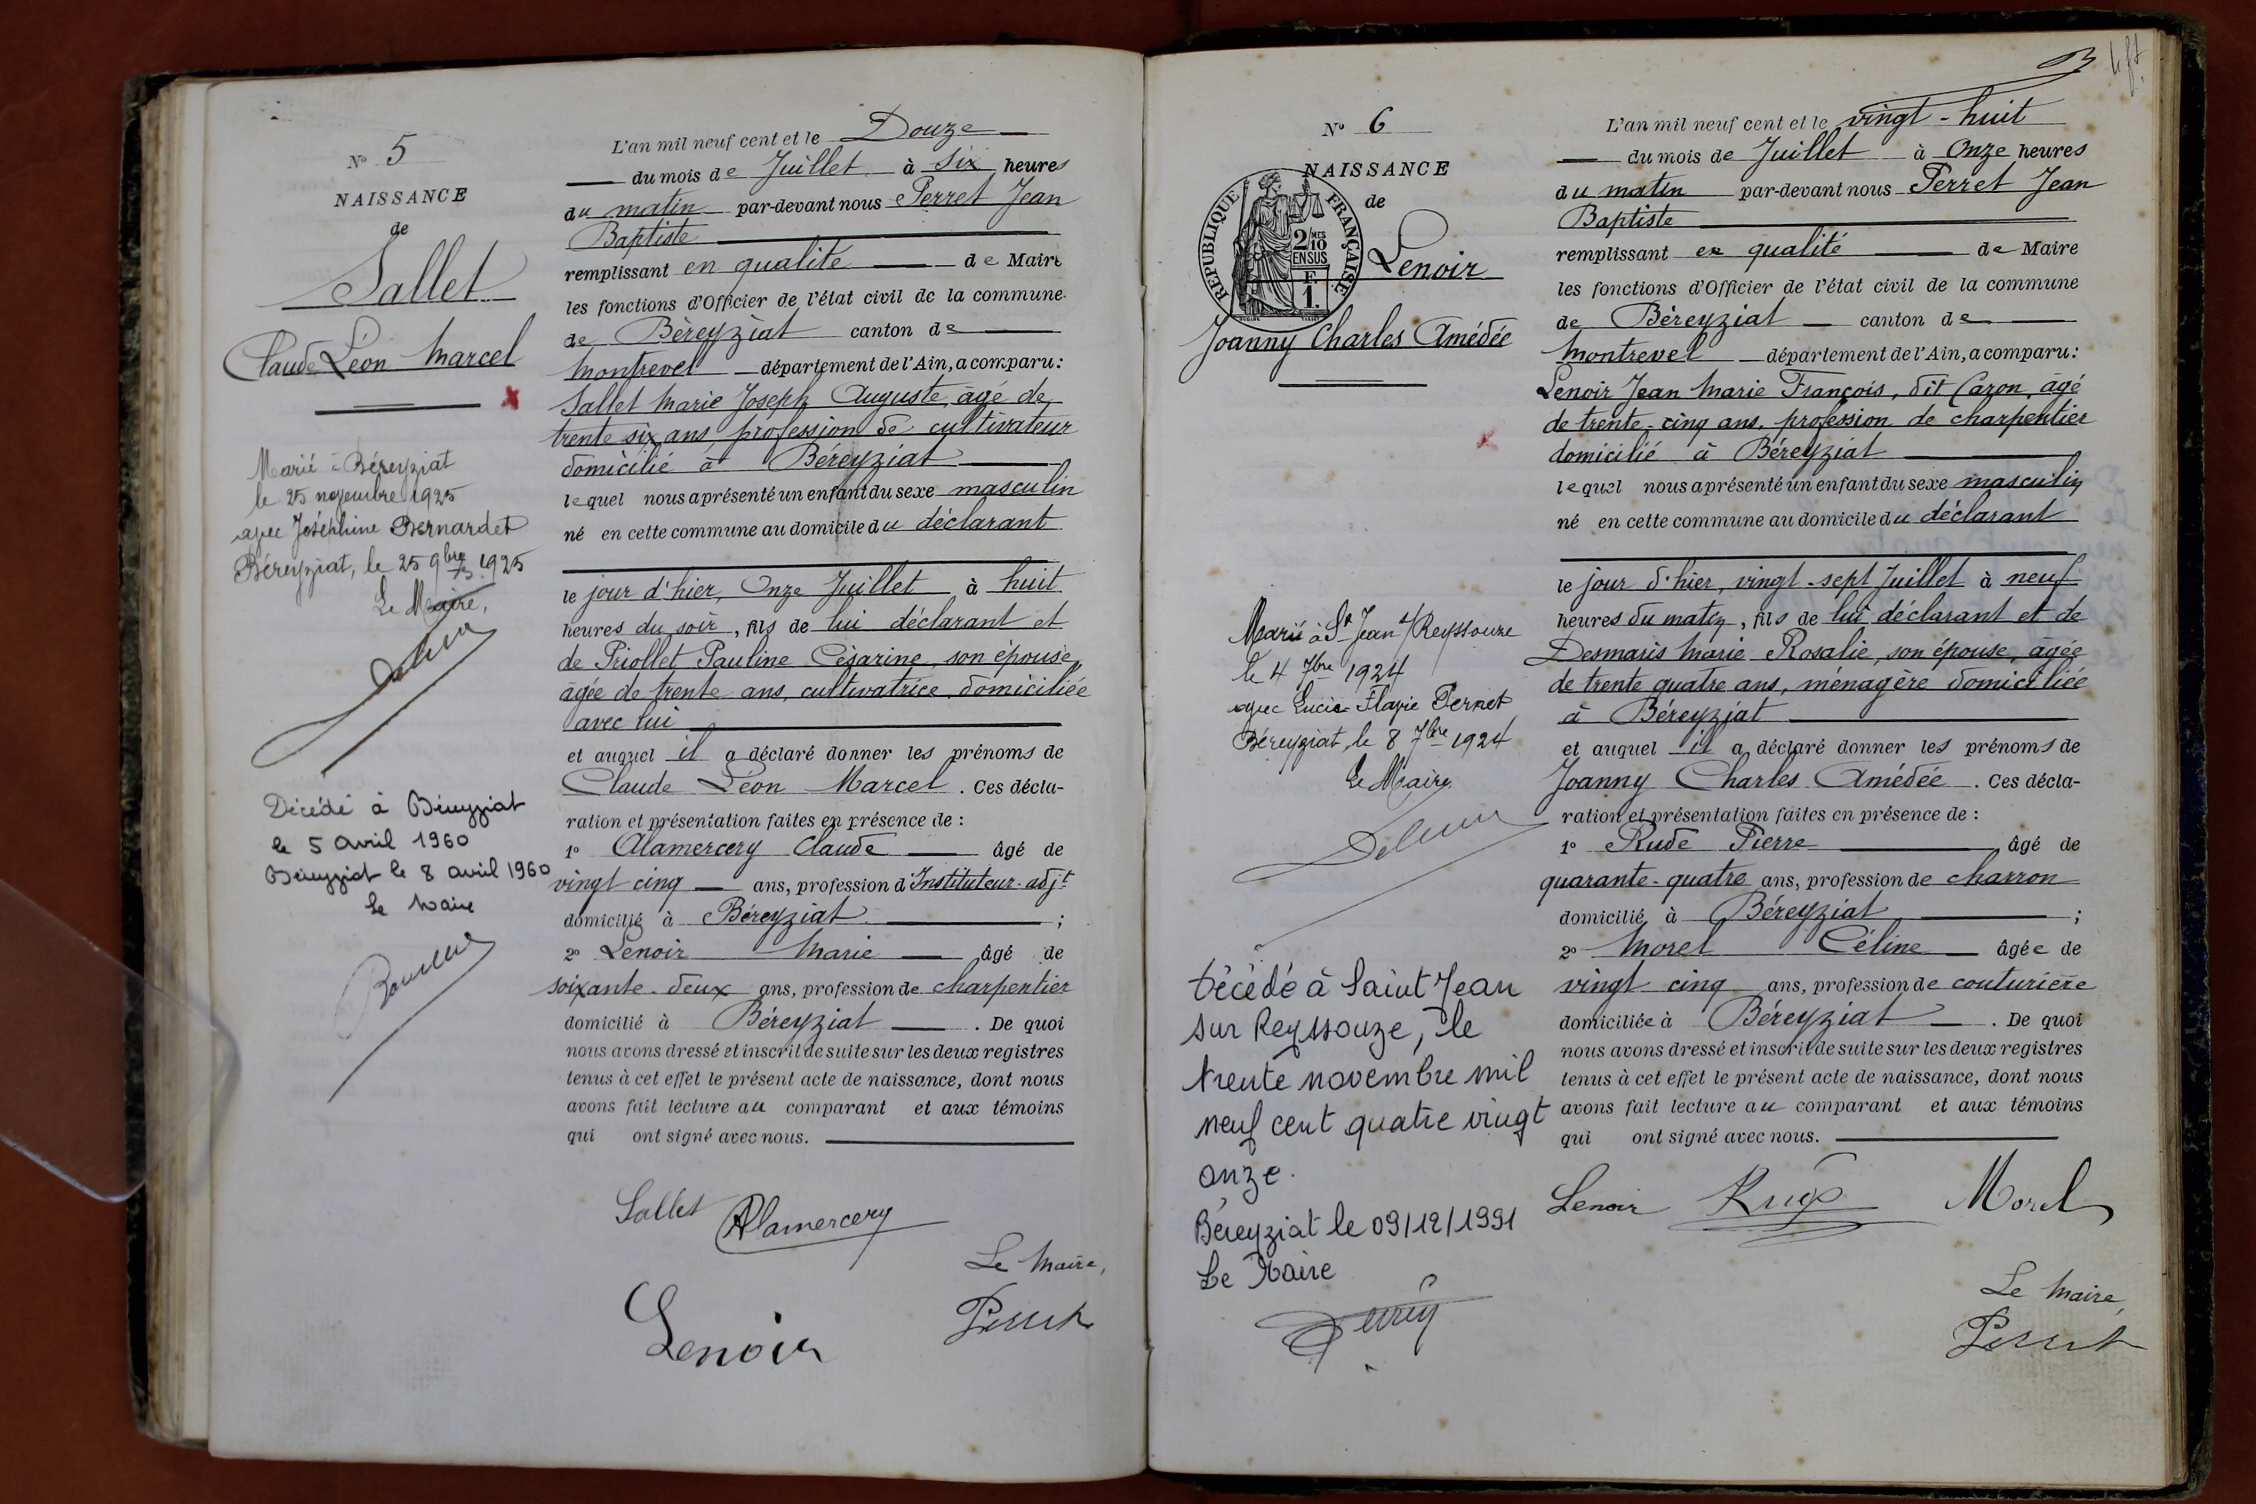 N° 5
NAISSANCE
de
Sallet
Claude Léon Marcel
Marié à Béreyziat
le 25 novembre 1925
avec Joséphine Bernardet
Béreyziat, le 25 9bre 1925
Le Maire,
Décédé à Béreyziat
le 5 avril 1960
Béreyziat le 8 avril 1960
le Maire
L'an mil neuf cent et le Douze
du mois de Juillet à six heures
du matin par-devant nous Perret Jean
Baptiste
remplissant en qualité de Maire
les fonctions d'Officier de l'état civil de la commune
de Béreyziat canton de
Montrevel département de l'Ain, a comparu:
Sallet Marie Joseph Auguste, âgé de
trente six ans, profession de cultivateur
domicilié à Béreyziat
lequel nous a présenté un enfant du sexe masculin
né en cette commune au domicile du déclarant
le jour d'hier, Onze Juillet à huit
heures du soir, fils de lui déclarant et
de Priollet Pauline Césarine, son épouse,
âgée de trente ans, cultivatrice, domiciliée
avec lui
et auquel il a déclaré donner les prénoms de
Claude Léon Marcel. Ces décla-
ration et présentation faites en présence de :
1° Alamercery Claude âgé de
vingt cinq ans, profession d'Instituteur-adjt
domicilié à Béreyziat ;
2° Lenoir Marie âgé de
soixante-deux ans, profession de charpentier
domicilié à Béreyziat. De quoi
nous avons dressé et inscrit de suite sur les deux registres
tenus à cet effet le présent acte de naissance, dont nous
avons fait lecture au comparant et aux témoins
qui ont signé avec nous.
Sallet Alamercery
Le Maire,
Lenoir Perret
N° 6
NAISSANCE
de
RÉPUBLIQUE FRANÇAISE
2/10 MES
EN SUS
F.
1.
Lenoir
Joanny Charles Amédée
Marié à St Jean s/Reyssouze
le 4 7bre 1924
avec Lucie Flavie Pernet
Béreyziat, le 8 7bre 1924
Le Maire
Décédé à Saint Jean
sur Reyssouze, le
trente novembre mil
neuf cent quatre vingt
onze.
Béreyziat le 09/12/1991
Le Maire
L'an mil neuf cent et le vingt-huit
du mois de Juillet à Onze heures
du matin par-devant nous Perret Jean
Baptiste
remplissant en qualité de Maire
les fonctions d'Officier de l'état civil de la commune
de Béreyziat canton de
Montrevel département de l'Ain, a comparu:
Lenoir Jean Marie François, dit Caron, âgé
de trente-cinq ans, profession de charpentier
domicilié à Béreyziat
lequel nous a présenté un enfant du sexe masculin
né en cette commune au domicile du déclarant
le jour d'hier, vingt-sept Juillet à neuf
heures du matin, fils de lui déclarant et de
Desmaris Marie Rosalie, son épouse, âgée
de trente quatre ans, ménagère domiciliée
à Béreyziat
et auquel il a déclaré donner les prénoms de
Joanny Charles Amédée. Ces décla-
ration et présentation faites en présence de :
1° Rude Pierre âgé de
quarante-quatre ans, profession de charron
domicilié à Béreyziat ;
2° Morel Céline âgée de
vingt cinq ans, profession de couturière
domiciliée à Béreyziat. De quoi
nous avons dressé et inscrit de suite sur les deux registres
tenus à cet effet le présent acte de naissance, dont nous
avons fait lecture au comparant et aux témoins
qui ont signé avec nous.
Lenoir Rude Morel
Le Maire,
Perret